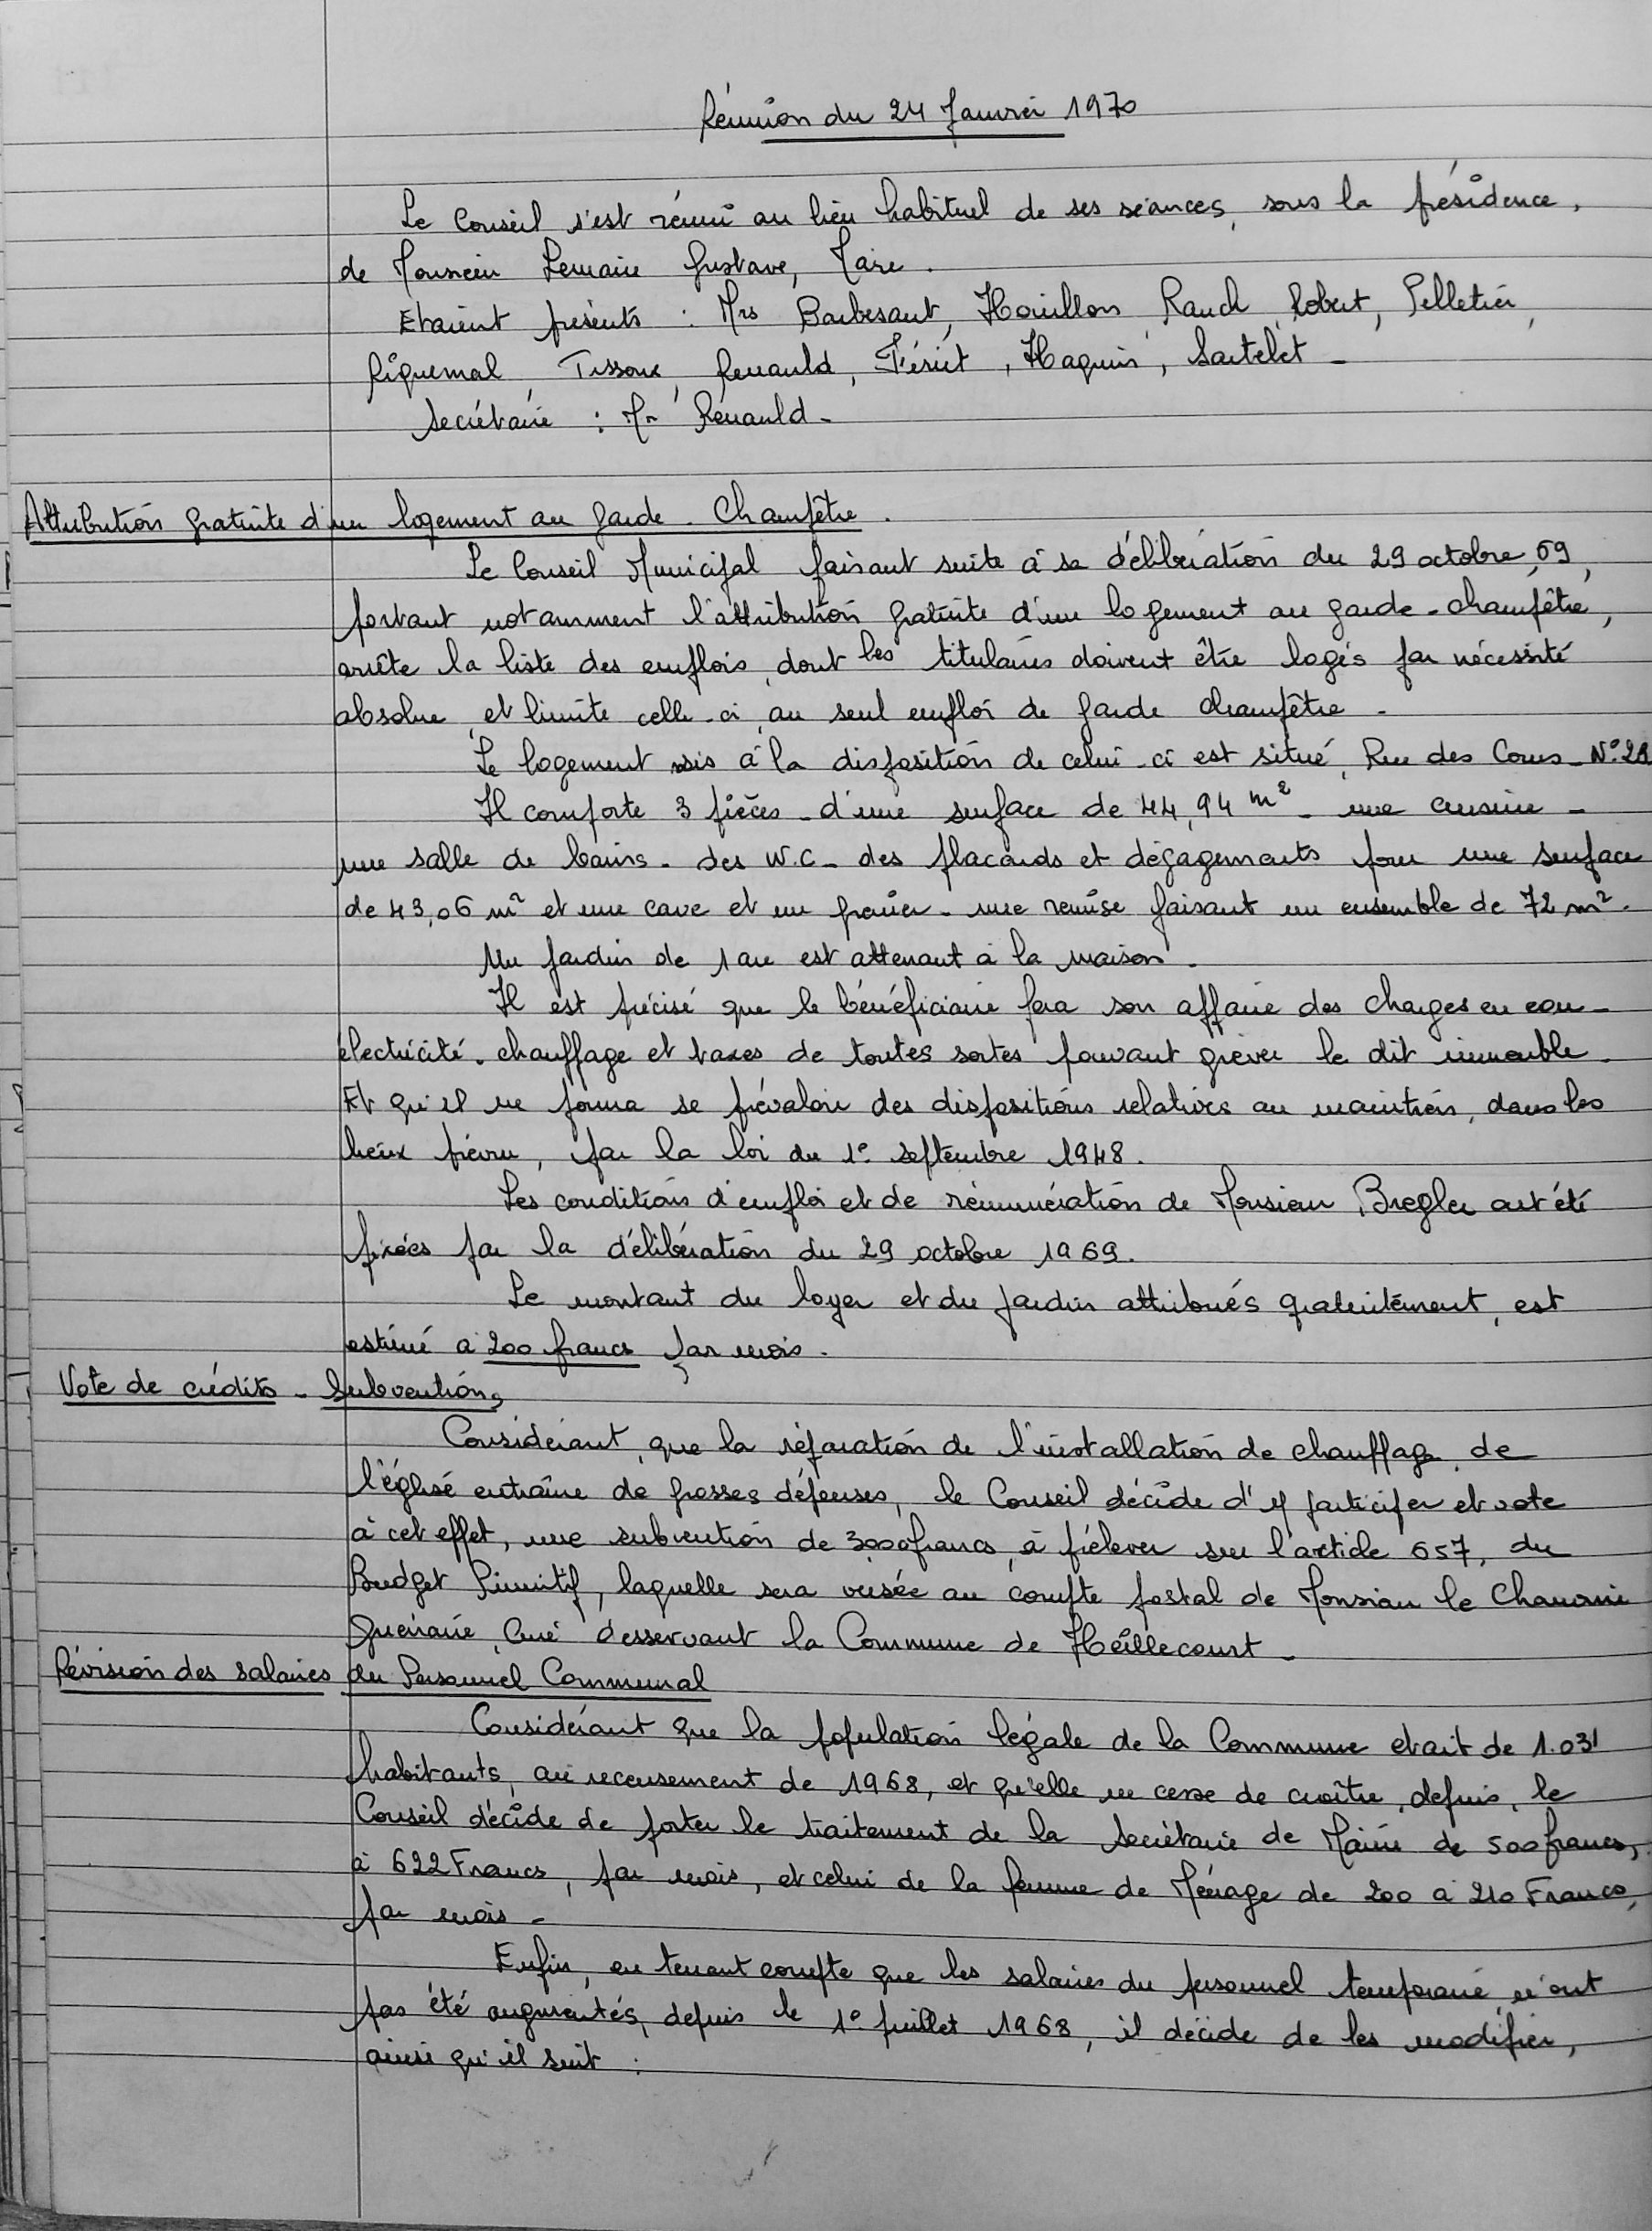 Réunion du 24 Janvier 1970
Le Conseil s'est réuni au lieu habituel de ses séances, sous la présidence,
de Monsieur Lemaire Gustave, Maire.
Etaient présents : Mrs Barbesant, Houillon, Rauch, Robert, Pelletier,
Piquemal, Tissoux, Renauld, Fériet, Haquin, Sartelet -
Secrétaire : Mr Renauld -
Attribution gratuite d'un logement au garde - Champêtre.
Le Conseil Municipal faisant suite à sa délibération du 29 octobre, 69,
portant notamment l'attribution gratuite d'un logement au garde - champêtre,
arrête la liste des emplois, dont les titulaires doivent être logés par nécessité
absolue, et limite celle-ci, au seul emploi de garde champêtre -
Le logement mis à la disposition de celui-ci est situé, Rue des Cours - N°
Il comporte 3 pièces - d'une surface de 44,94 m² - une cuisine -
une salle de bains - des W.C - des placards et dégagements pour une surface
de 43,06 m² et une cave et un grenier - une remise faisant un ensemble de 72 m².
Un jardin de 1 are est attenant à la maison.
Il est précisé que le bénéficiaire fera son affaire des charges en eau -
électricité - chauffage et taxes de toutes sortes pouvant grever le dit immeuble.
Et qu'il ne pourra se prévaloir des dispositions relatives au maintien, dans les
lieux prévu, par la loi du 1° septembre 1948.
Les conditions d'emploi et de rémunération de Monsieur Bregler ont été
fixées par la délibération du 29 octobre 1969.
Le montant du loyer et du jardin attribués gratuitement, est
estimé à 200 francs par mois.
Vote de crédits - Subventions
Considérant, que la réparation de l'installation de chauffage, de
l'église entraîne de grosses dépenses, le Conseil décide d'y participer et vote
à cet effet, une subvention de 3000 francs, à prélever sur l'article 657, du
Budget Primitif, laquelle sera versée au compte postal de Monsieur le Chanoine
Curé desservant la Commune de Heillecourt -
Révision des salaires du Personnel Communal
Considérant que la population légale de la Commune etait de 1.031
habitants, au recensement de 1968, et qu'elle ne cesse de croître, depuis, le
Conseil décide de porter le traitement de la Secrétaire de Mairie de 500 francs,
à 622 Francs, par mois, et celui de la femme de Ménage de 200 à 210 Francs,
par mois -
Enfin, en tenant compte que les salaires du personnel temporaire, n'ont
pas été augmentés, depuis le 1° juillet 1968, il décide de les modifier,
ainsi qu'il suit :